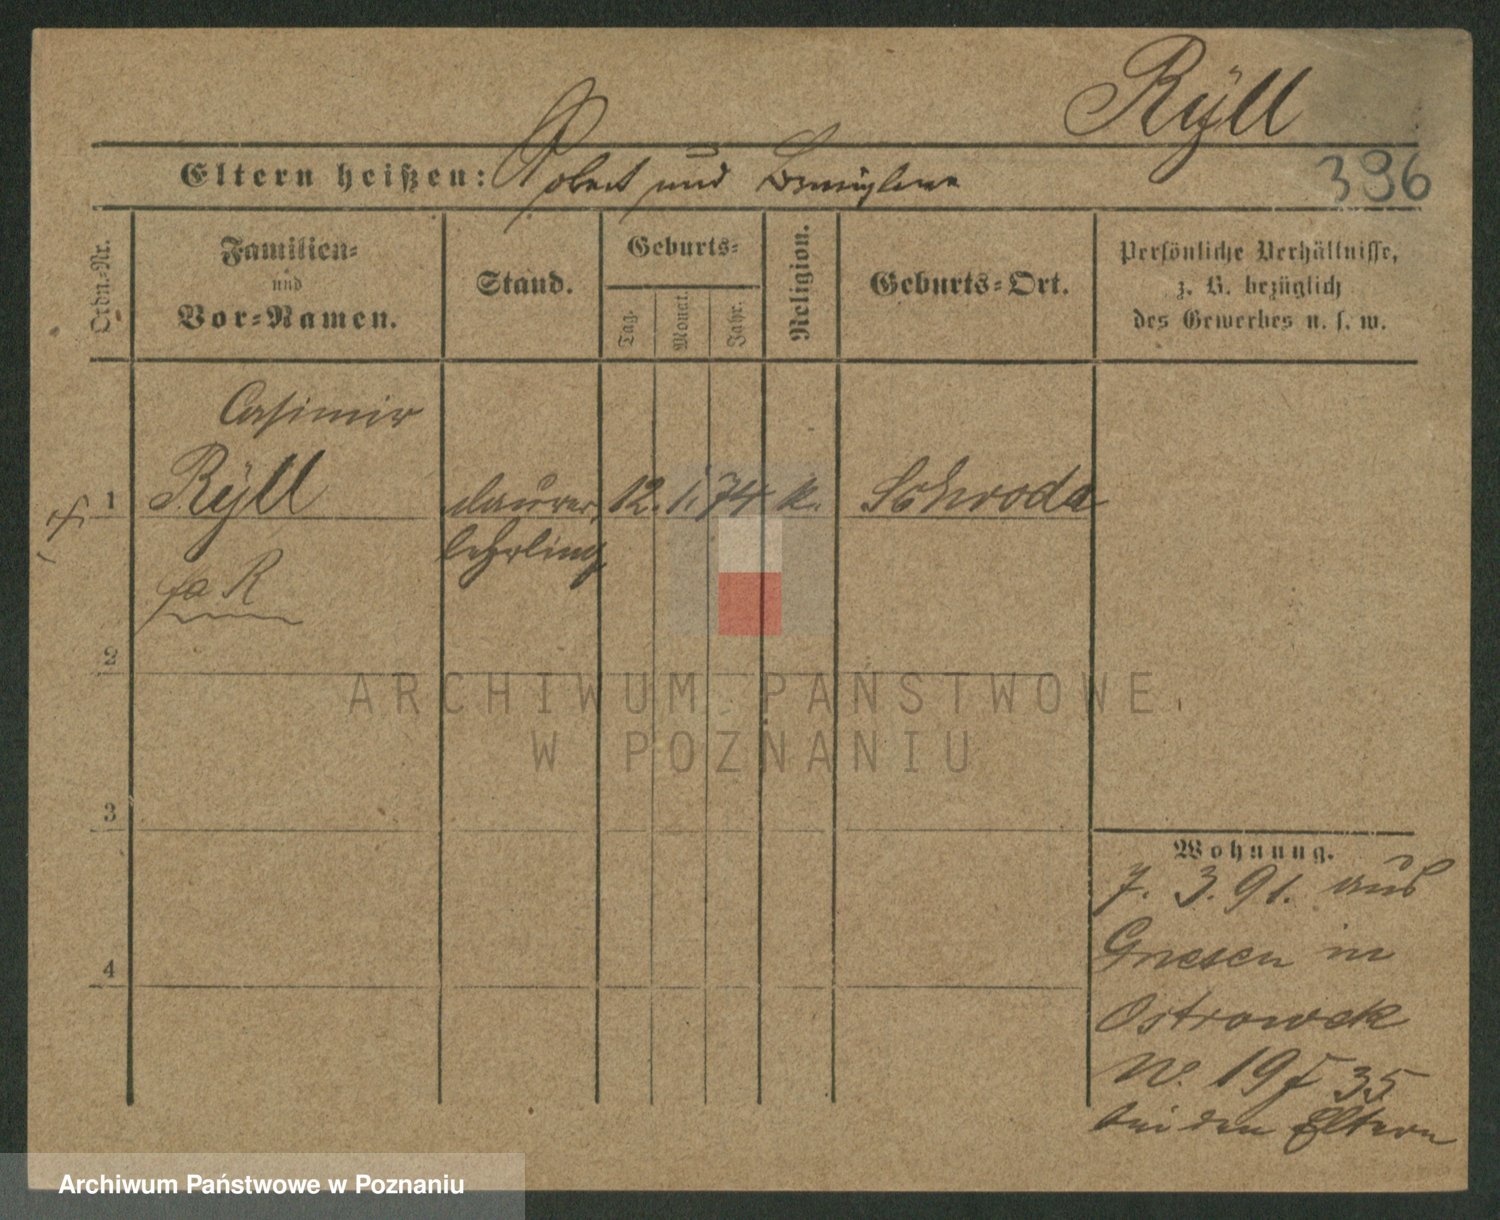 Rÿll
396
Eltern heißen: Robert und
Ordn.-Nr.
Familien-
und
Vor-Namen.
Stand.
Geburts-
Tag.
Monat.
Jahr.
Religion.
Geburts-Ort.
Persönliche Verhältnisse,
z. B. bezüglich
des Gewerbes u. s. w.
Casimir
1 Rÿll 12. 1. 74 k. Schroda
lehrling
2
3
4
Wohnung.
7. 3. 91. aus
Gnesen in
Ostrowek
N. 19 35
bei den Eltern
ARCHIWUM PAŃSTWOWE
W POZNANIU
Archiwum Państwowe w Poznaniu